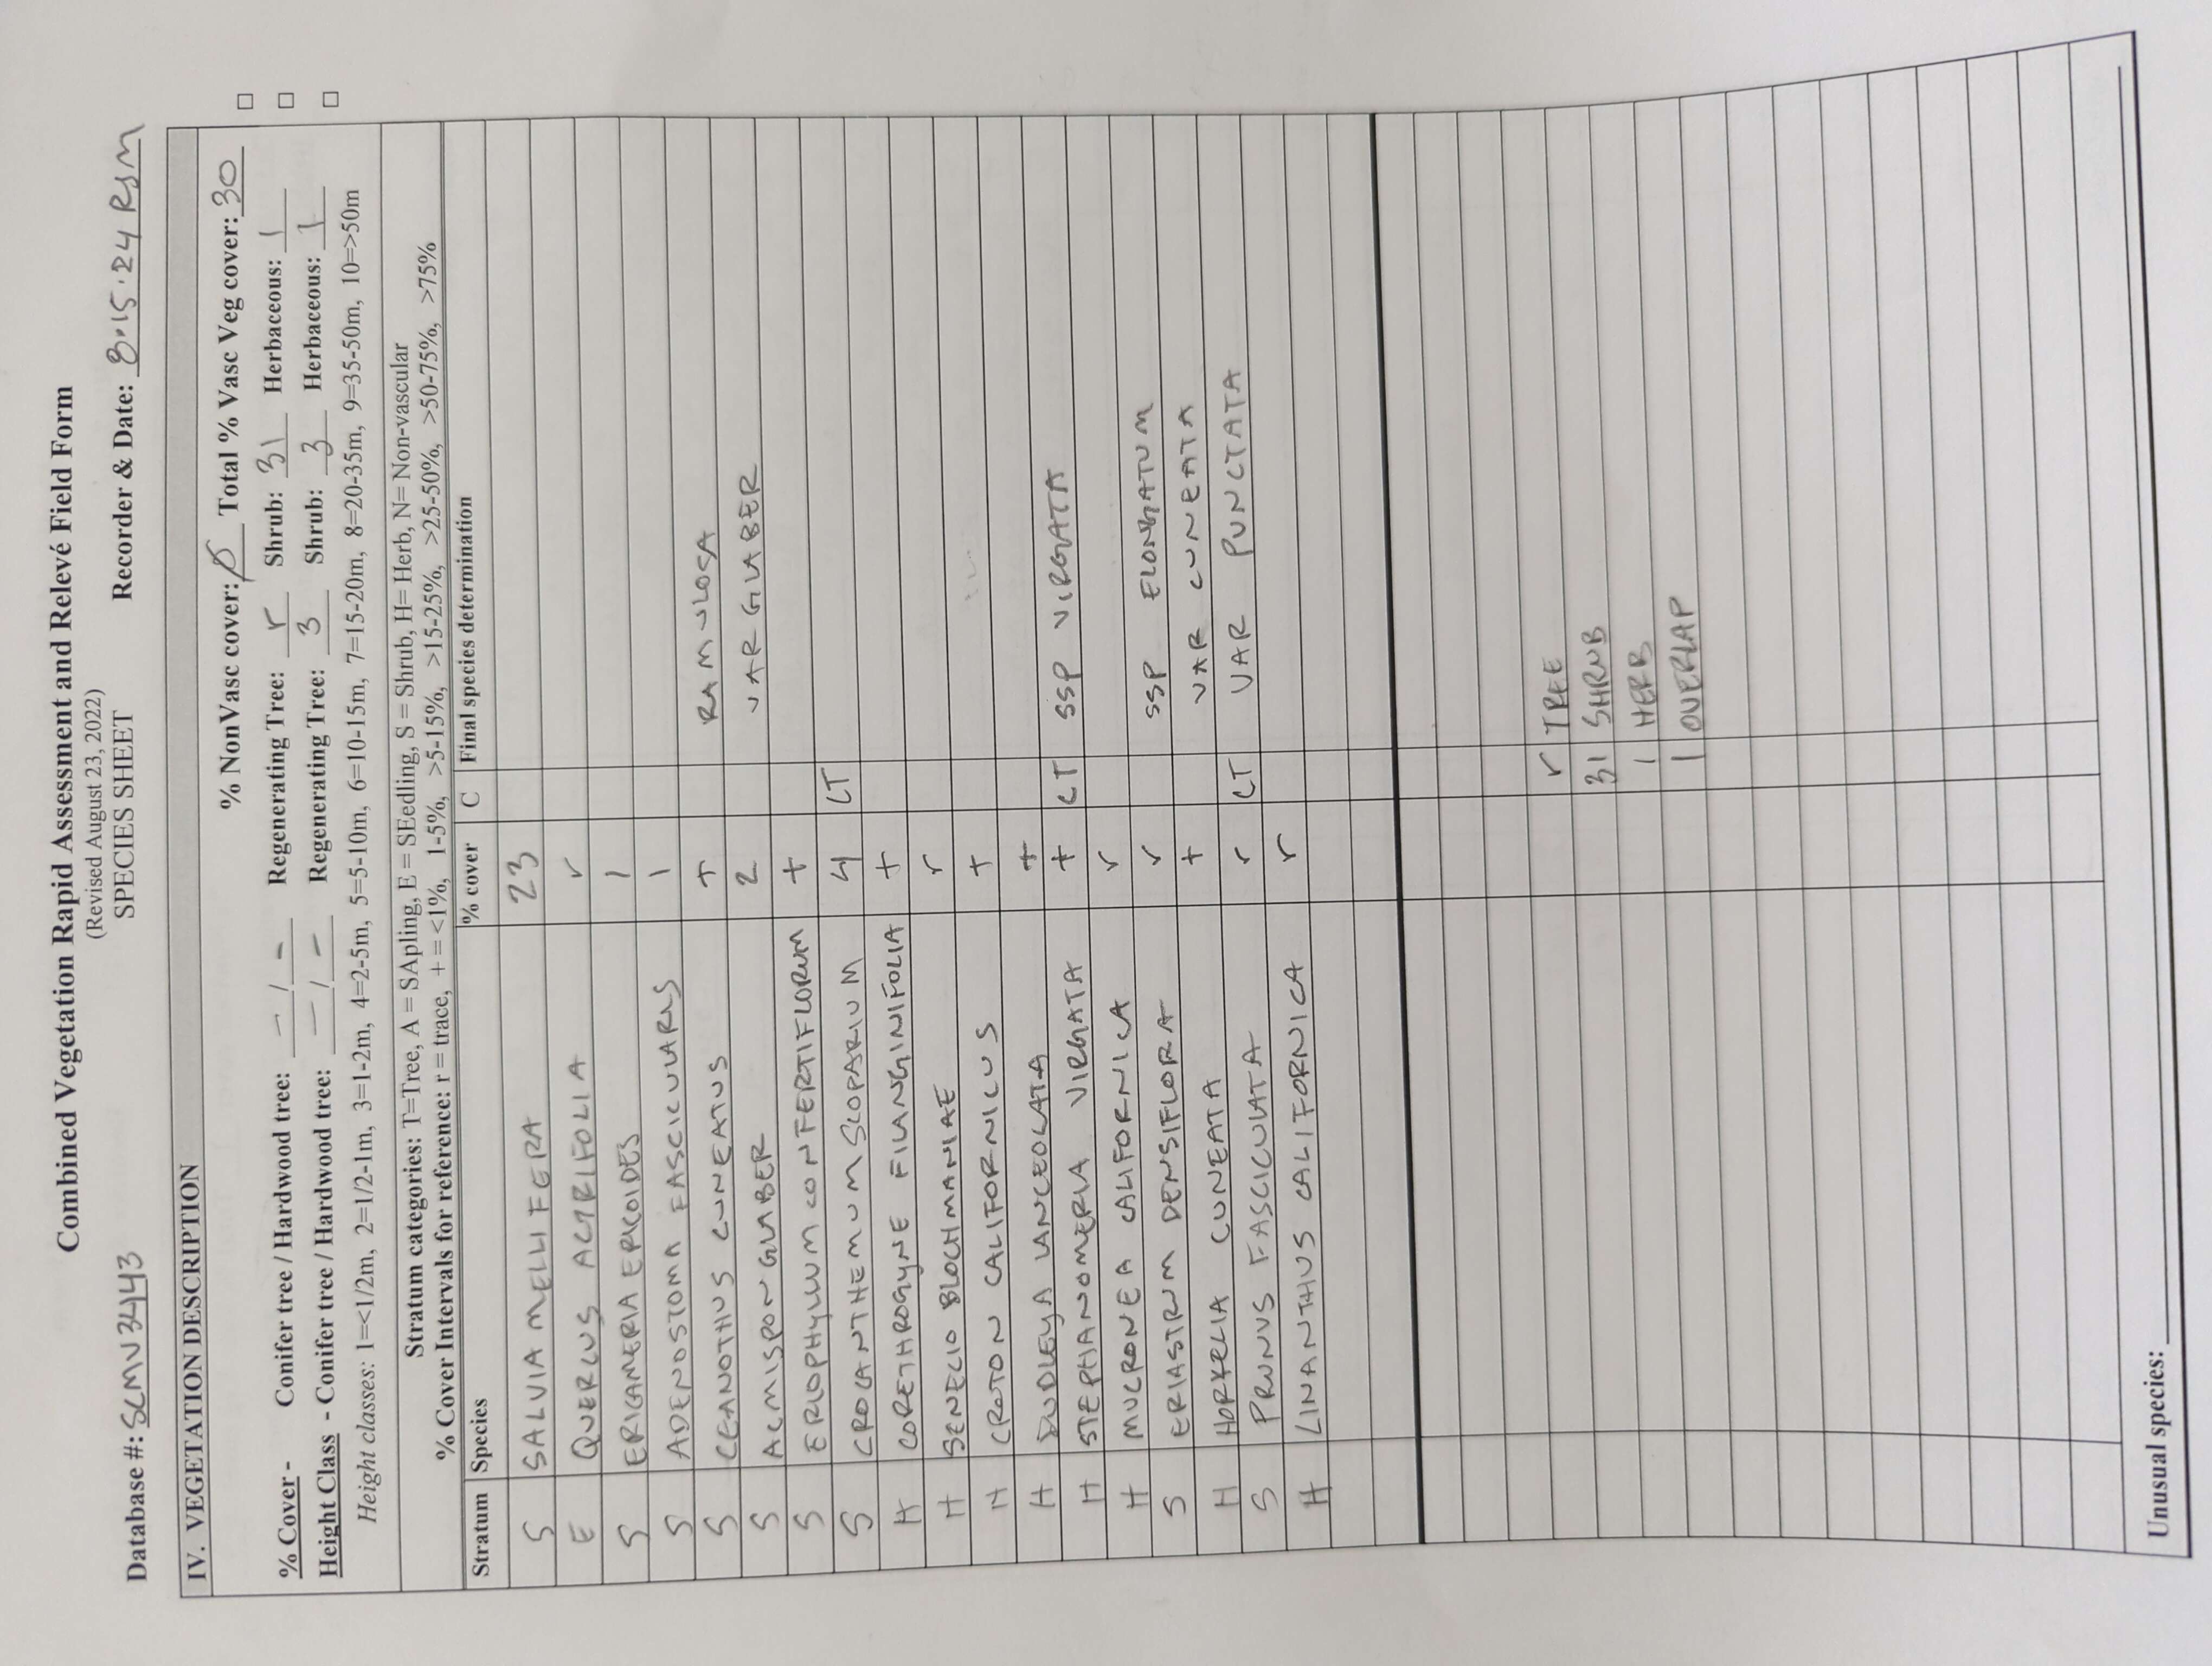 Combined Vegetation Rapid Assessment and Relevé Field Form
(Revised August 23, 2022)
SPECIES SHEET
Database #: SCMV3443 Recorder & Date: 8.15.24 RSM
IV. VEGETATION DESCRIPTION
% NonVasc cover: Ø Total % Vasc Veg cover: 30 □
% Cover - Conifer tree / Hardwood tree: - / - Regenerating Tree: r Shrub: 31 Herbaceous: 1 □
Height Class - Conifer tree / Hardwood tree: - / - Regenerating Tree: 3 Shrub: 3 Herbaceous: 1 □
Height classes: 1=<1/2m, 2=1/2-1m, 3=1-2m, 4=2-5m, 5=5-10m, 6=10-15m, 7=15-20m, 8=20-35m, 9=35-50m, 10=>50m
Stratum categories: T=Tree, A = SApling, E = SEedling, S = Shrub, H= Herb, N= Non-vascular
% Cover Intervals for reference: r = trace, + = <1%, 1-5%, >5-15%, >15-25%, >25-50%, >50-75%, >75%
Stratum Species % cover C Final species determination
S SALVIA MELLIFERA 23
E QUERCUS AGRIFOLIA r
S ERICAMERIA ERICOIDES 1
S ADENOSTOMA FASCICULARIS 1
S CEANOTHUS CUNEATUS + RAMULOSA
S ACMISPON GLABER 2 VAR GLABER
S ERIOPHYLLUM CONFERTIFLORUM +
S CROCANTHEMUM SCOPARIUM 4 CT
H CORETHROGYNE FILANGINIFOLIA +
H SENECIO BLOCHMANIAE r
H CROTON CALIFORNICUS +
H DUDLEYA LANCEOLATA +
H STEPHANOMERIA VIRGATA + CT SSP VIRGATA
H MUCRONEA CALIFORNICA r
S ERIASTRUM DENSIFLORA r SSP ELONGATUM
H HORKELIA CUNEATA + VAR CUNEATA
S PRUNUS FASCICULATA r CT VAR PUNCTATA
H LINANTHUS CALIFORNICA r
r TREE
31 SHRUB
1 HERB
1 OVERLAP
Unusual species: